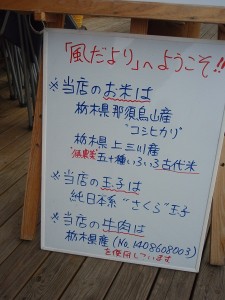 「風だより」へようこそ!!
※当店のお米は
栃木県那須烏山産
"コシヒカリ"
栃木県上三川産
五十種いろいろ古代米
※当店の玉子は
純日本系"さくら"玉子
※当店の牛肉は
栃木県産(No.1408608003)
を使用しています